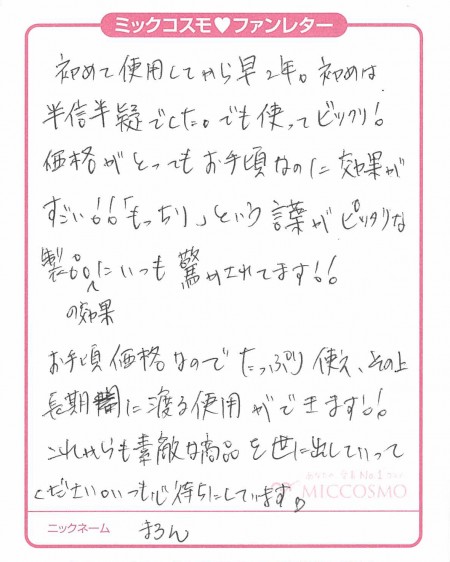 ミックコスモ♥ファンレター
初めて使用してから早2年。初めは
半信半疑でした。でも使ってビックリ!
価格がとってもお手頃なのに効果が
すごい!!「もっちり」という言葉がピッタリな
製品にいつも驚かされてます!!
の効果
お手頃価格なのでたっぷり使え、その上
長期間に渡る使用ができます!!
これからも素敵な商品を世に出していって
ください。いつも心待ちにしています♡
MICCOSMO
ニックネーム まろん